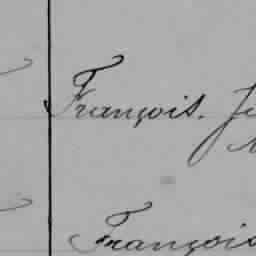 François.
François